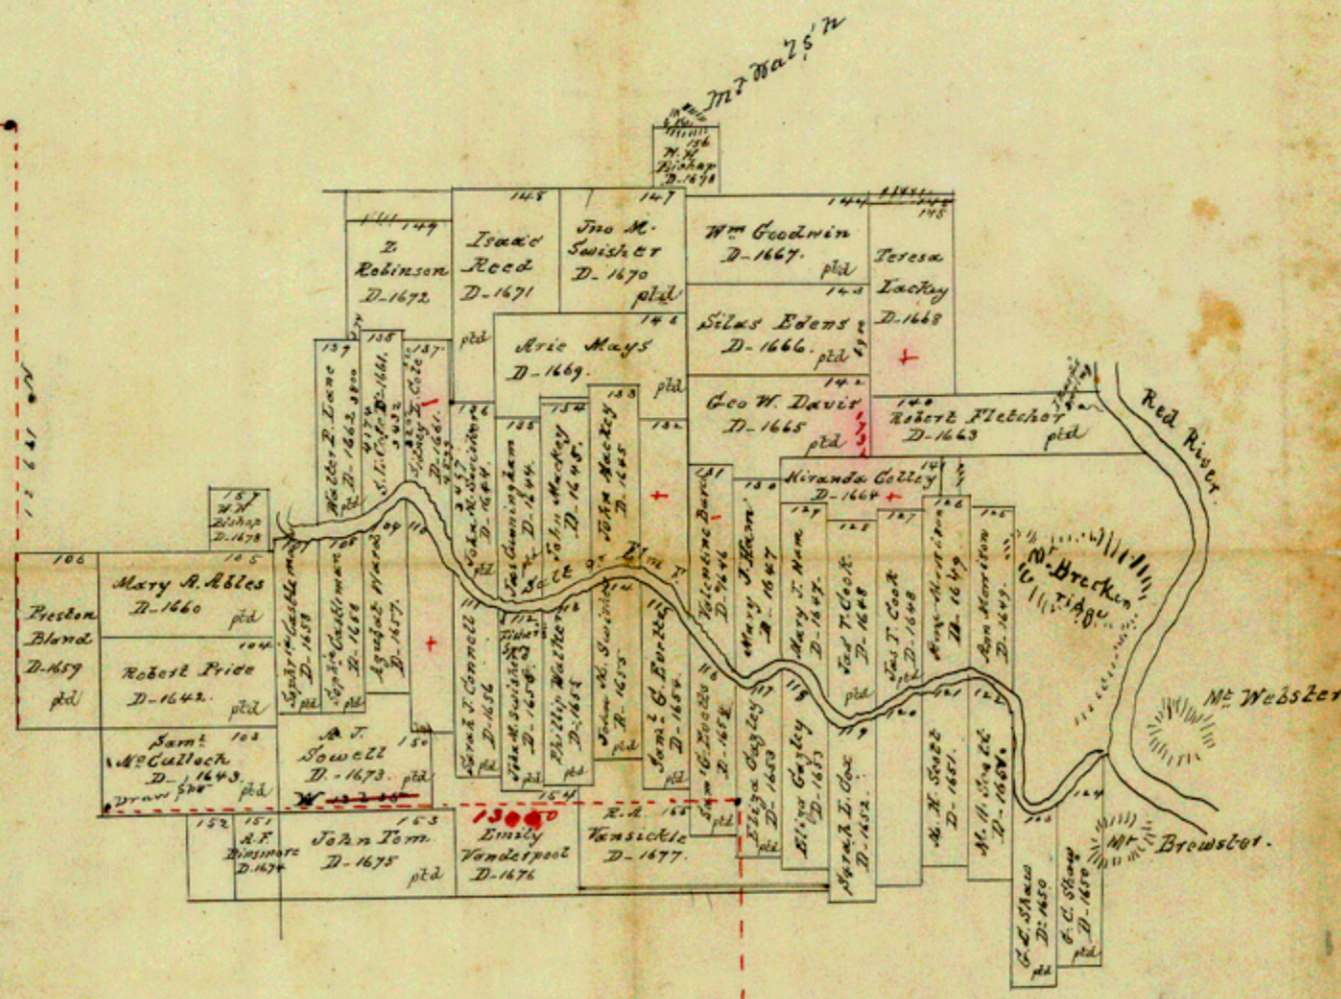 Mt Walsh
156
H. H.
Bishop
D-1678
149
Z.
Robinson
D-1672
148
Isaac
Reed
D-1671
ptd
147
Jno M.
Swisher
D-1670
ptd
144
Wm Goodwin
D-1667.
ptd
145
Teresa
Lackey
D-1668
143
Silas Edens
D-1666.
ptd
146
Arie Mays
D-1669.
ptd
142
Geo W. Davis
D-1665
ptd
140
Robert Fletcher
D-1663
ptd
Red River.
141
Miranda Colley
D-1664
139
Walter P. Lane
D-1662
138
137
D-1661.
136
D-1644.
ptd
135
Jas Cuningham
D-1644.
134
John Mackey
D-1645.
133
John Mackey
D-1645
132
131
Valentine Bard
D-1646
130
Mary J. Ham
D-1647
129
Mary J. Ham
D-1647.
128
Jas T. Cook
D-1648
ptd
127
Jas T. Cook
D-1648
126
D-1649
125
Ann Morrison
D-1649.
Mt. Brecken
ridge
Mt Webster
Mt Brewster.
157
H. H.
Bishop
D-1678
106
Preston
Bland
D-1659
ptd
105
Mary A. Ables
D-1660
ptd
104
Robert Price
D-1642.
ptd
103
Saml
McCulloch
D-1643.
ptd
107
Sophie Castleman
D-1658
ptd
108
Sophie Castleman
D-1658
ptd
109
August Wans
D-1657.
110
Salt
Elm
150
A. J.
Sowell
D-1673.
ptd
111
Sarah J. Connell
D-1656
ptd
112
Jno M. Swisher
D-1655
ptd
113
Phillip Walker
D-1655
ptd
114
John M. Swisher
D-1655
ptd
115
Saml G. Everetts
D-1654.
ptd
116
D-1654
ptd
117
Eliza Gazley
D-1653
ptd
118
Eliza Gazley
D-1653
119
Sarah L. Cox
D-1652.
120
121
D-1651.
122
D-1651.
123
G. C. Shaw
D-1650
ptd
124
G. C. Shaw
D-1650
ptd
152
151
A. F.
Dinsmore
D-1674
153
John Tom.
D-1675
ptd
154
Emily
Vanderpool
D-1676
155
Vansickle
D-1677.